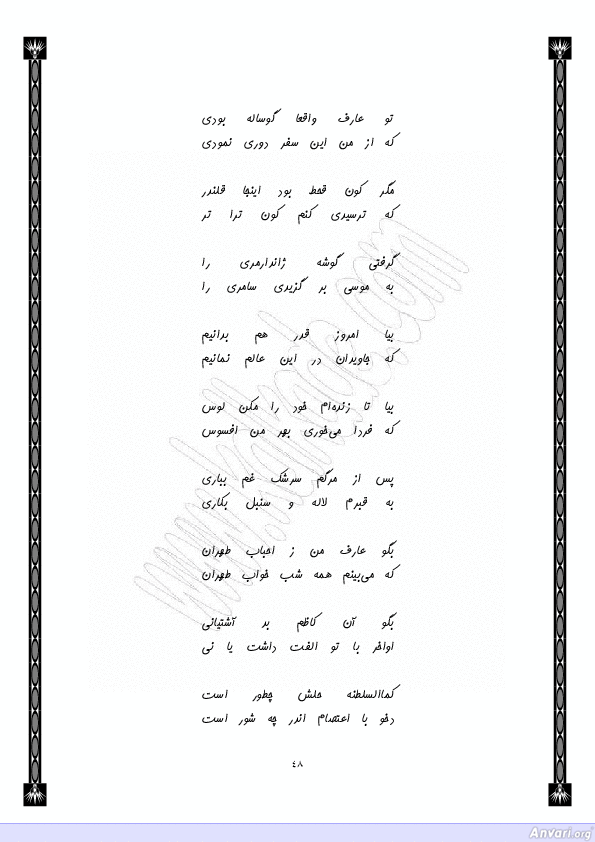 تو عارف واقعا گوساله بودی
که از من این سفر دوری نمودی
مگر کون قحط بود اینجا قلندر
که ترسیدی کنم کون ترا تر
گرفتی گوشه ژاندارمری را
به موسی بر گزیدی سامری را
بیا امروز قدر هم بدانیم
که جاویدان در این عالم نمانیم
بیا تا زنده‌ام خود را مکن لوس
که فردا می‌خوری بهر من افسوس
پس از مرگم سرشک غم بباری
به قبرم لاله و سنبل بکاری
بگو عارف من ز احباب طهران
که می‌بینم همه شب خواب طهران
بگو آن کاظم بد آشتیانی
اواخر با تو الفت داشت یا نی
کمالسلطنه حلش چطور است
دخو با اعتصام اندر چه شور است
www.kalhnade.com
٤٨
Anvari.org